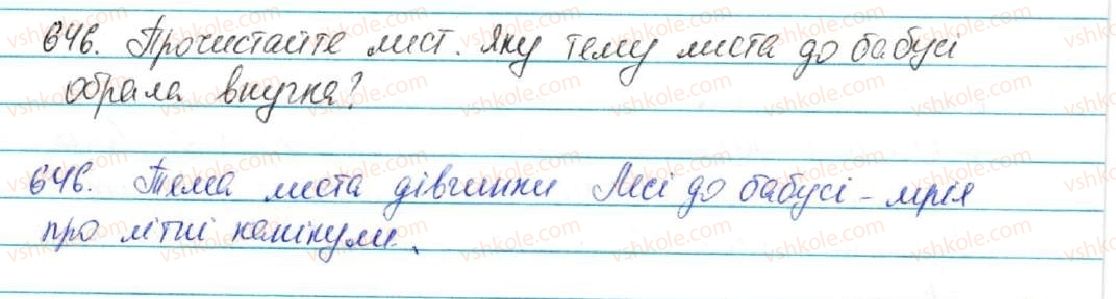 646. Прочитайте лист. Яку тему листа до бабусі
обрала внучка?
646. Тема листа дівчинки Лесі до бабусі - мрія
про літні канікули.